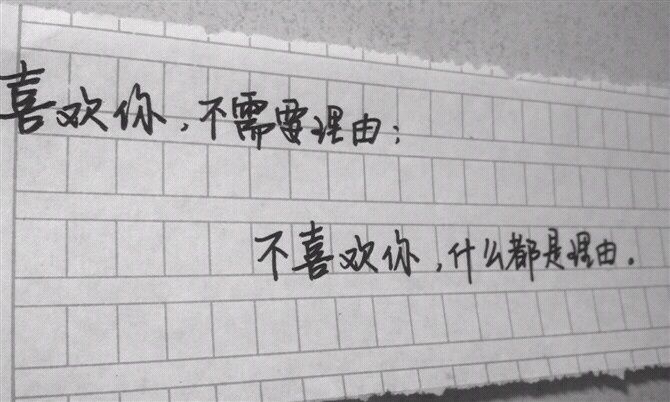 喜欢你，不需要理由；
不喜欢你，什么都是理由。